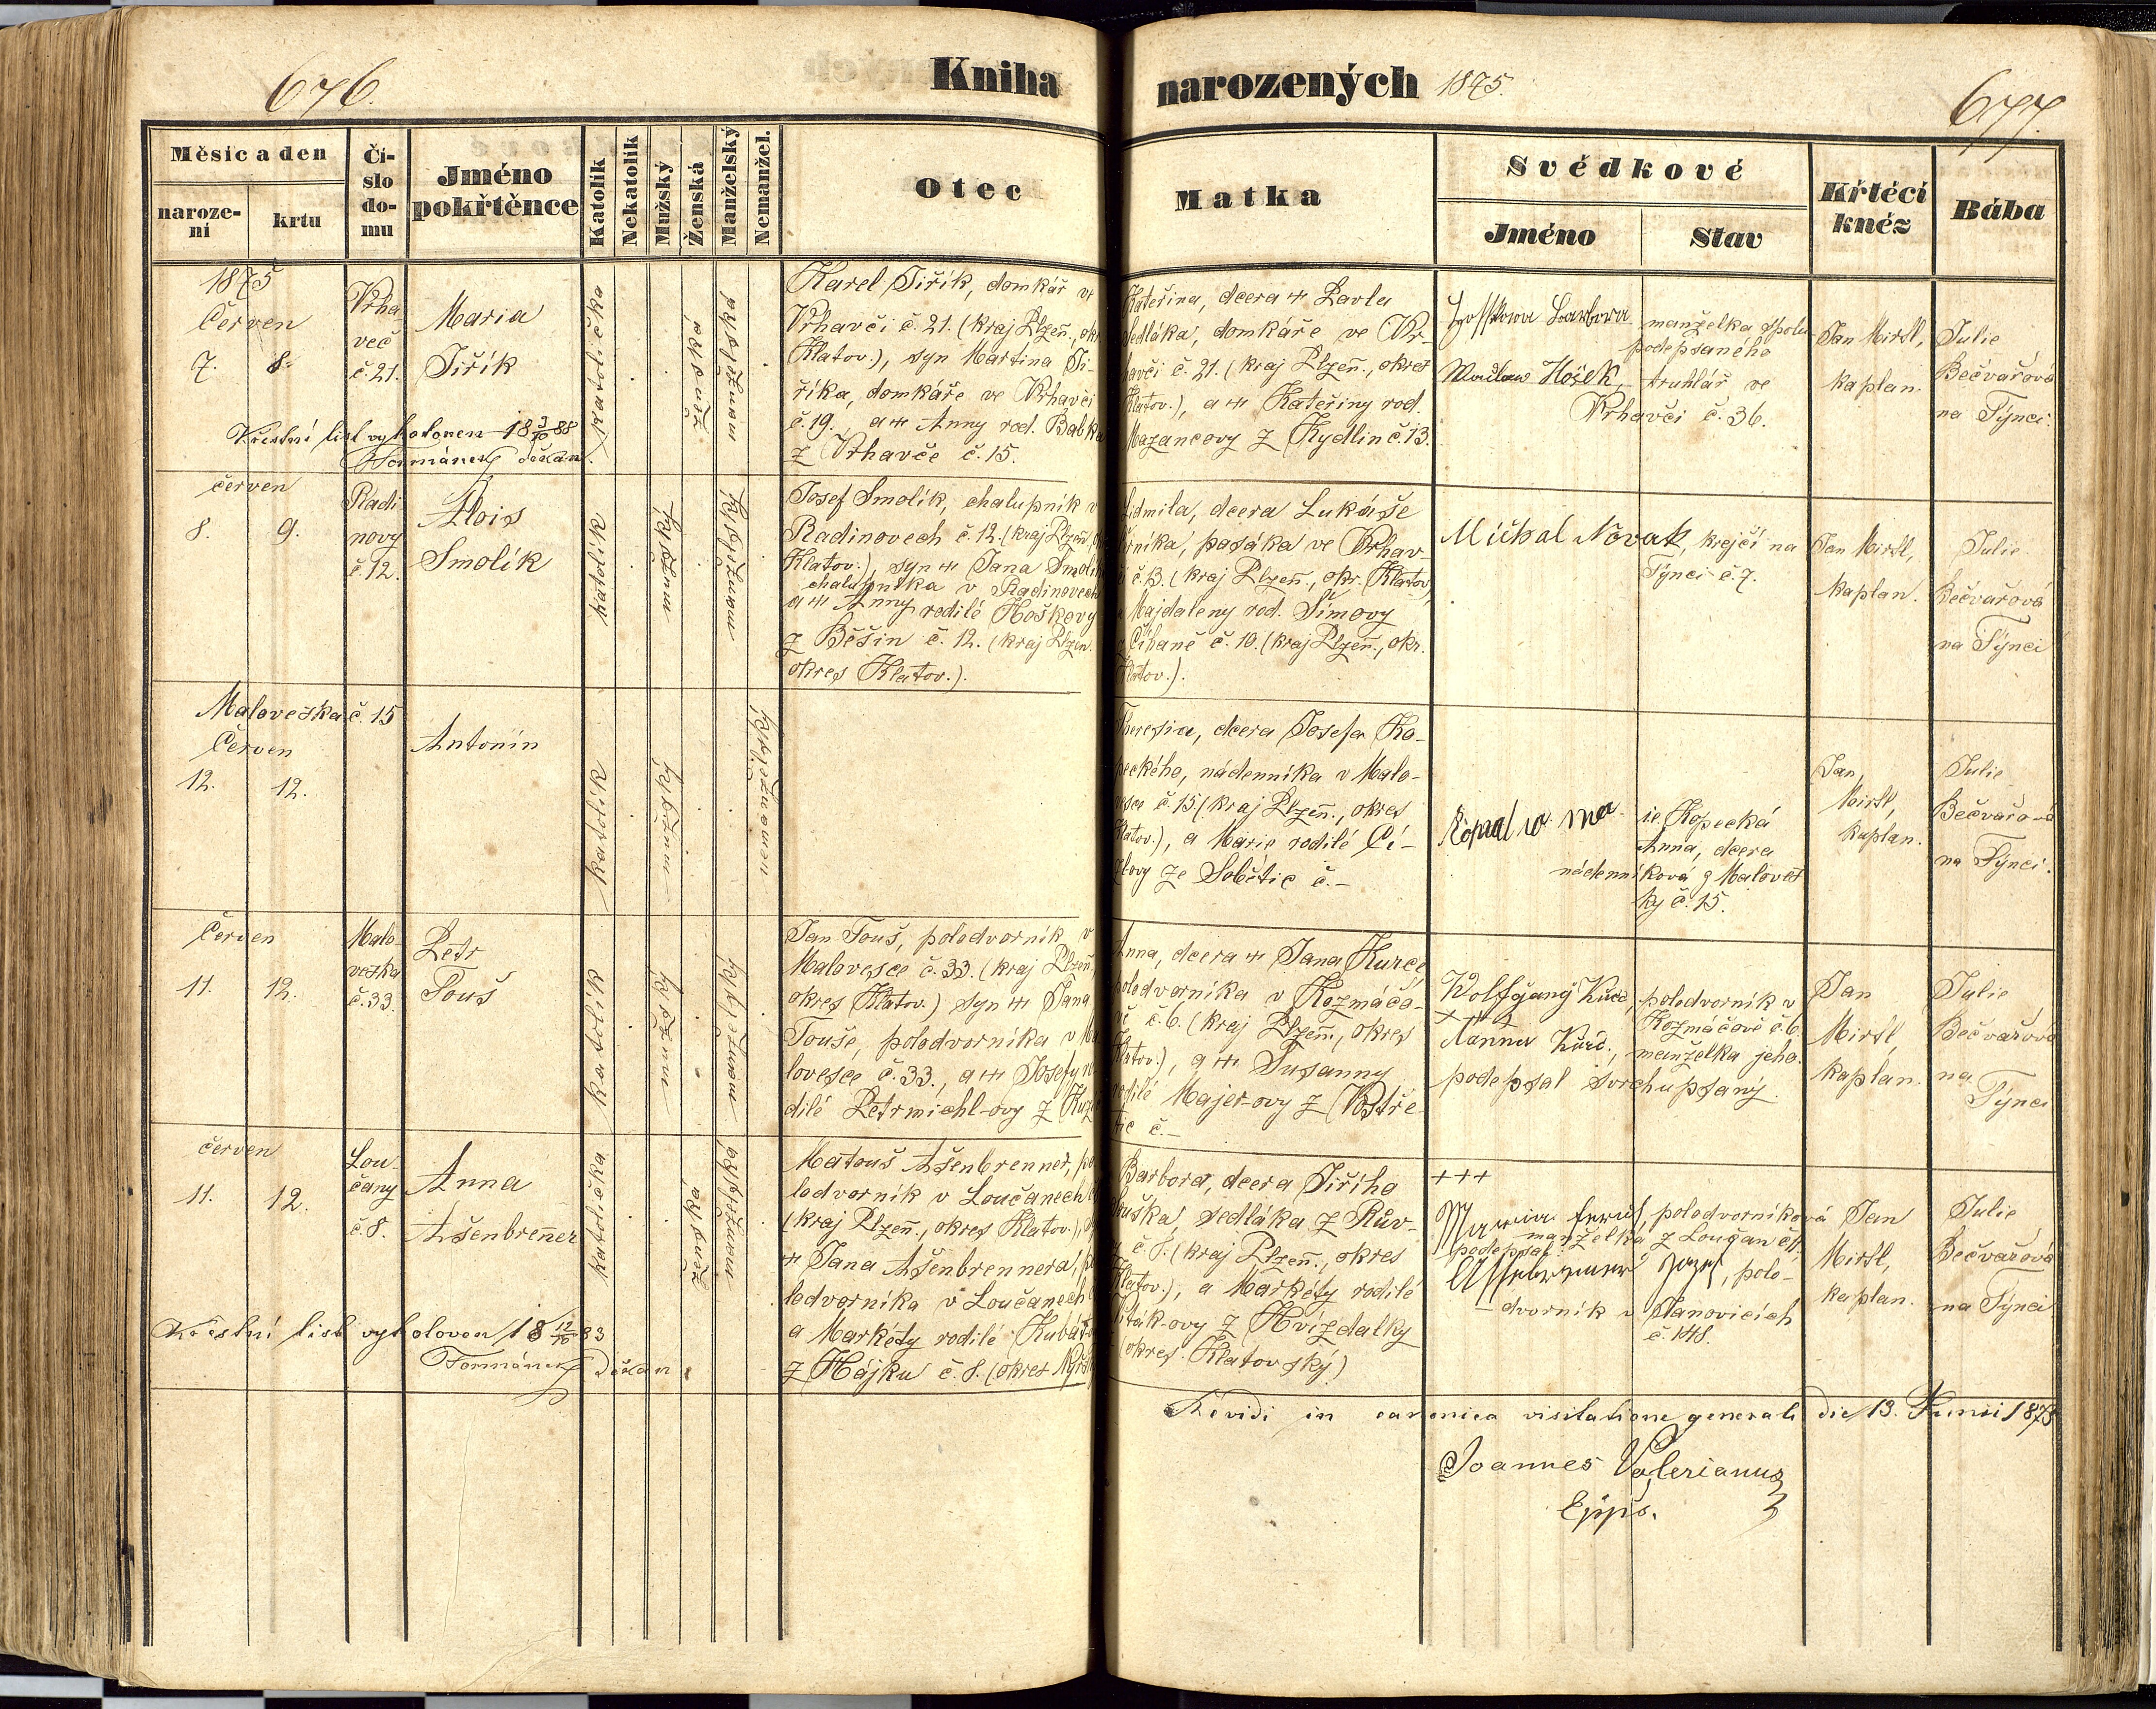 676.
Kniha
narozených 1875.
677.
Měsíc a den
naroze-
ní
krtu
Čí-
slo
do-
mu
Jméno
pokřtěnce
Katolík
Nekatolík
Mužský
Ženská
Manželský
Nemanžel.
Otec
Matka
Svědkové
Jméno
Stav
Křtěcí
kněz
Bába
1875
Červen
7. 8.
Vrha-
več
č. 21.
Maria
Jiřík
katolička
ženská
manželská
Karel Jiřík, domkář ve
Vrhavči č. 21. (kraj Plzeň., okr.
Klatov.), syn Martina Ji-
říka, domkáře ve Vrhavči
č. 19. a Anny rod. Babka
z Vrhavče č. 15.
Kateřina, dcera Pavla
Sedláka, domkáře ve Vr-
havči č. 21. (kraj Plzeň., okres
Klatov.), a Kateřiny rod.
Mazancovy z Kydlin č. 13.
Barbora manželka spolu
podepsaného
Hošek, truhlář ve
Vrhavči č. 36.
Jan Mirtl,
kaplan.
Julie
Bečvařová
na Týnci.
Křestní list vyhotoven 18 3/10 88
Formánek děkan.
červen
8. 9.
Radi
novy
č. 12.
Alois
Smolík
katolík
mužský
manželský
Josef Smolík, chalupník v
Radinovech č. 12. (kraj Plzeň.,
Klatov.), syn Jana Smolík
chalupníka v Radinovech
a Anny rodilé Hoškovy
z Běšin č. 12. (kraj Plzeň.
okres Klatov.).
Ludmila, dcera Lukáše
pasáka ve Vrhav-
či č. 13. (kraj Plzeň., okr. Klatov.),
a Majdaleny rod. Šimovy
z Číhaně č. 10. (kraj Plzeň., okr.
Klatov.).
Míchal Novak, krejčí na
Týnci č. 7.
Jan Mirtl,
kaplan.
Julie
Bečvařová
na Týnci
Maloveska č. 15
Červen
12. 12.
Antonín
katolík
mužský
nemanželský.
Theresia, dcera Josefa Ko-
peckého, nádenníka v Malo-
vesce č. 15 (kraj Plzeň., okres
Klatov.), a Marie rodilé Čí-
zlovy ze Sobětic č. –
ie. Kopecká
Anna, dcera
nádenníková z Maloves
ky č. 15.
Jan
Mirtl,
kaplan.
Julie
Bečvařová
na Týnci.
Červen
11. 12.
Malo-
veska
č. 33.
Petr
Touš
katolík
mužský
manželský
Jan Touš, polodvorník v
Malovesce č. 33. (kraj Plzeň.,
okres Klatov.) syn Jana
Touše, polodvorníka v Ma
lovesce č. 33., a Josefy ro
dilé Petrmichl-ovy z
Anna, dcera Jana Kurce,
polodvorníka v Kozmáčo-
vě č. 6. (kraj Plzeň., okres
Klatov.), a Susanny
rodilé Majer-ovy z Postře-
tic č. –
Wolfgang Kurc, polodvorník v
Kozmáčově č. 6.
+++
Nanna Kurc., manželka jeho.
podepsal svrchupsaný.
Jan
Mirtl,
kaplan.
Julie
Bečvařová
na
Týnci
červen
11. 12.
Lou-
čany
č. 8.
Anna
Ašenbrenner
katolička
ženská
manželská
Matouš Ašenbrenner, po
lodvorník v Loučanech
(kraj Plzeň., okres Klatov.),
Jana Ašenbrennera, po
lodvorníka v Loučanech
a Markéty rodilé
z Hájku č. 8. (okres
Barbora, dcera Jiřího
sedláka z Rův-
č. 8. (kraj Plzeň., okres
Klatov.), a Markéty rodilé
z Hvízdalky
(okres. Klatovský)
+++
Maria polodvorníková
manželka z Loučan č. 11.
podepsal:
Josef, polo-
dvorník v Janovicích
č. 148.
Jan
Mirtl,
kaplan.
Julie
Bečvařová
na Týnci
Křestní list vyhotoven 18 12/10 83
Formánek Děkan
Revidi in canonica visitatione generali die 13. Junii 1875
Joannes Valerianus
Eppus.